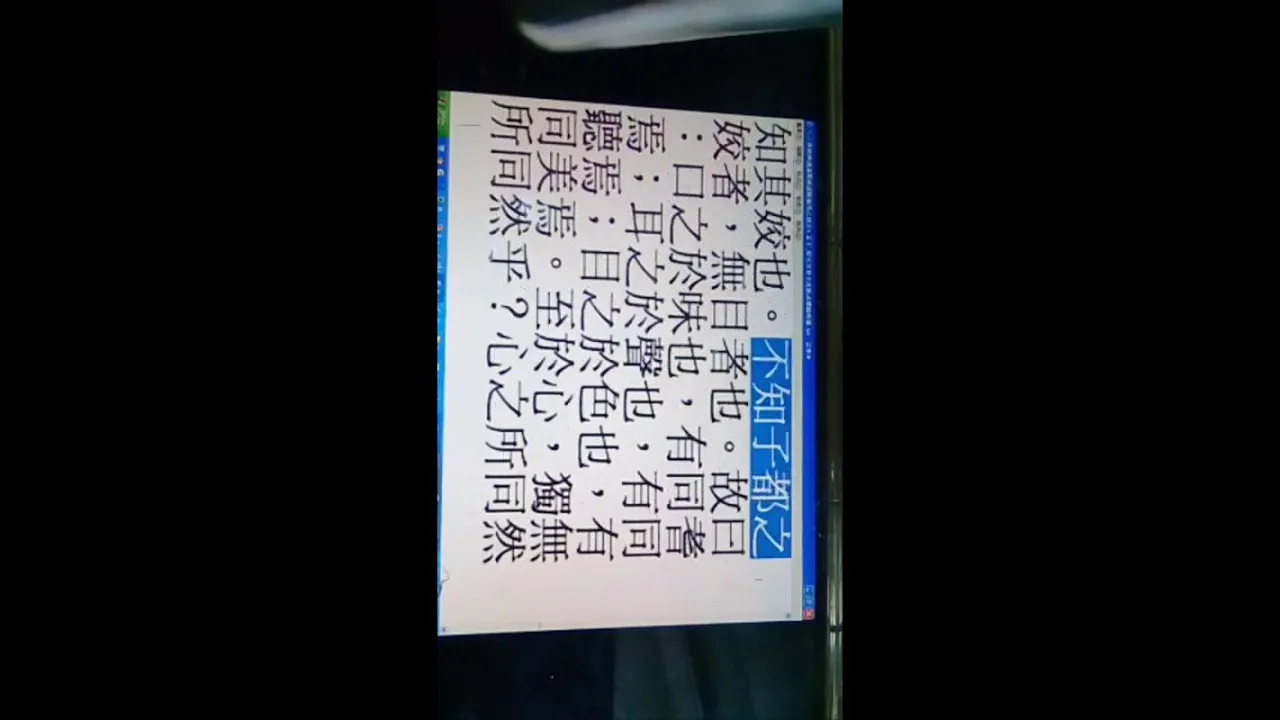 知其姣也。不知子都之
姣者，無目者也。故曰
：口之於味也，有同耆
焉；耳之於聲也，有同
聽焉；目之於色也，有
同美焉。至於心，獨無
所同然乎？心之所同然